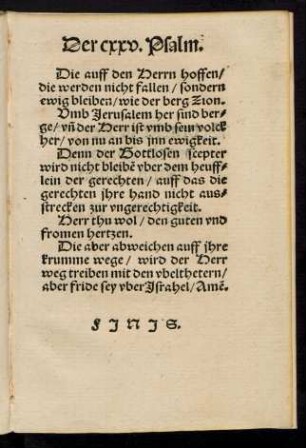 Der cxxv. Psalm.
Die auff den Herrn hoffen/
die werden nicht fallen/ sondern
ewig bleiben/ wie der berg Zion.
Vmb Jerusalem her sind ber-
ge/ vñ der Herr ist vmb sein volck
her/ von nu an bis jnn ewigkeit.
Denn der Gottlosen scepter
wird nicht bleibẽ vber dem heuff-
lein der gerechten/ auff das die
gerechten jhre hand nicht aus-
strecken zur vngerechtigkeit.
Herr thu wol/ den guten vnd
fromen hertzen.
Die aber abweichen auff jhre
krumme wege/ wird der Herr
weg treiben mit den vbelthetern/
aber fride sey vber Israhel/ Amẽ.
FINIS.